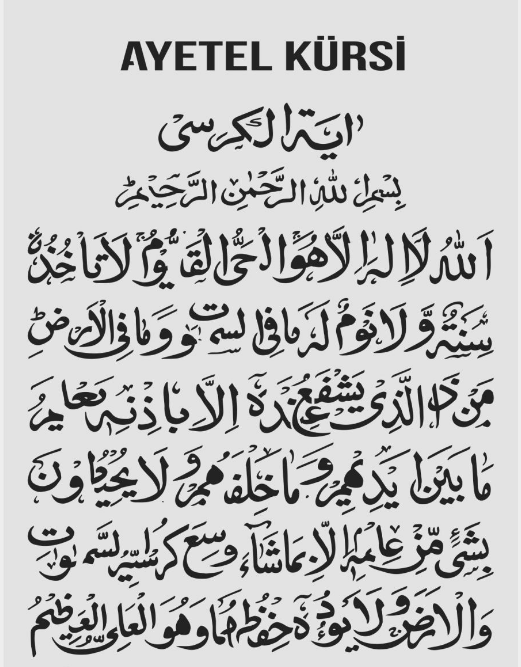 AYETEL KÜRSİ
اية الكرسى
بِسْمِ اللهِ الرَّحْمٰنِ الرَّحِيْمِ
اَللهُ لَا اِلٰهَ اِلَّا هُوَ الْحَىُّ الْقَيُّوْمُ لَا تَأْخُذُهُ
سِنَةٌ وَّلَا نَوْمٌ لَهُ مَا فِى السمٰوٰت وَمَا فِى الْاَرْضِ
مَنْ ذَا الَّذِىْ يَشْفَعُ عِنْدَهٗ اِلَّا بِاِذْنِهٖ يَعْلَمُ
مَا بَيْنَ اَيْدِيْهِمْ وَمَا خَلْفَهُمْ وَلَا يُحِيْطُوْنَ
بِشَىْءٍ مِّنْ عِلْمِهٖ اِلَّا بِمَا شَاءَ وَسِعَ كُرْسِيُّهُ السَّمٰوٰتِ
وَالْاَرْضَ وَلَا يَؤُدُهٗ حِفْظُهُمَا وَهُوَ الْعَلِىُّ الْعَظِيْمُ